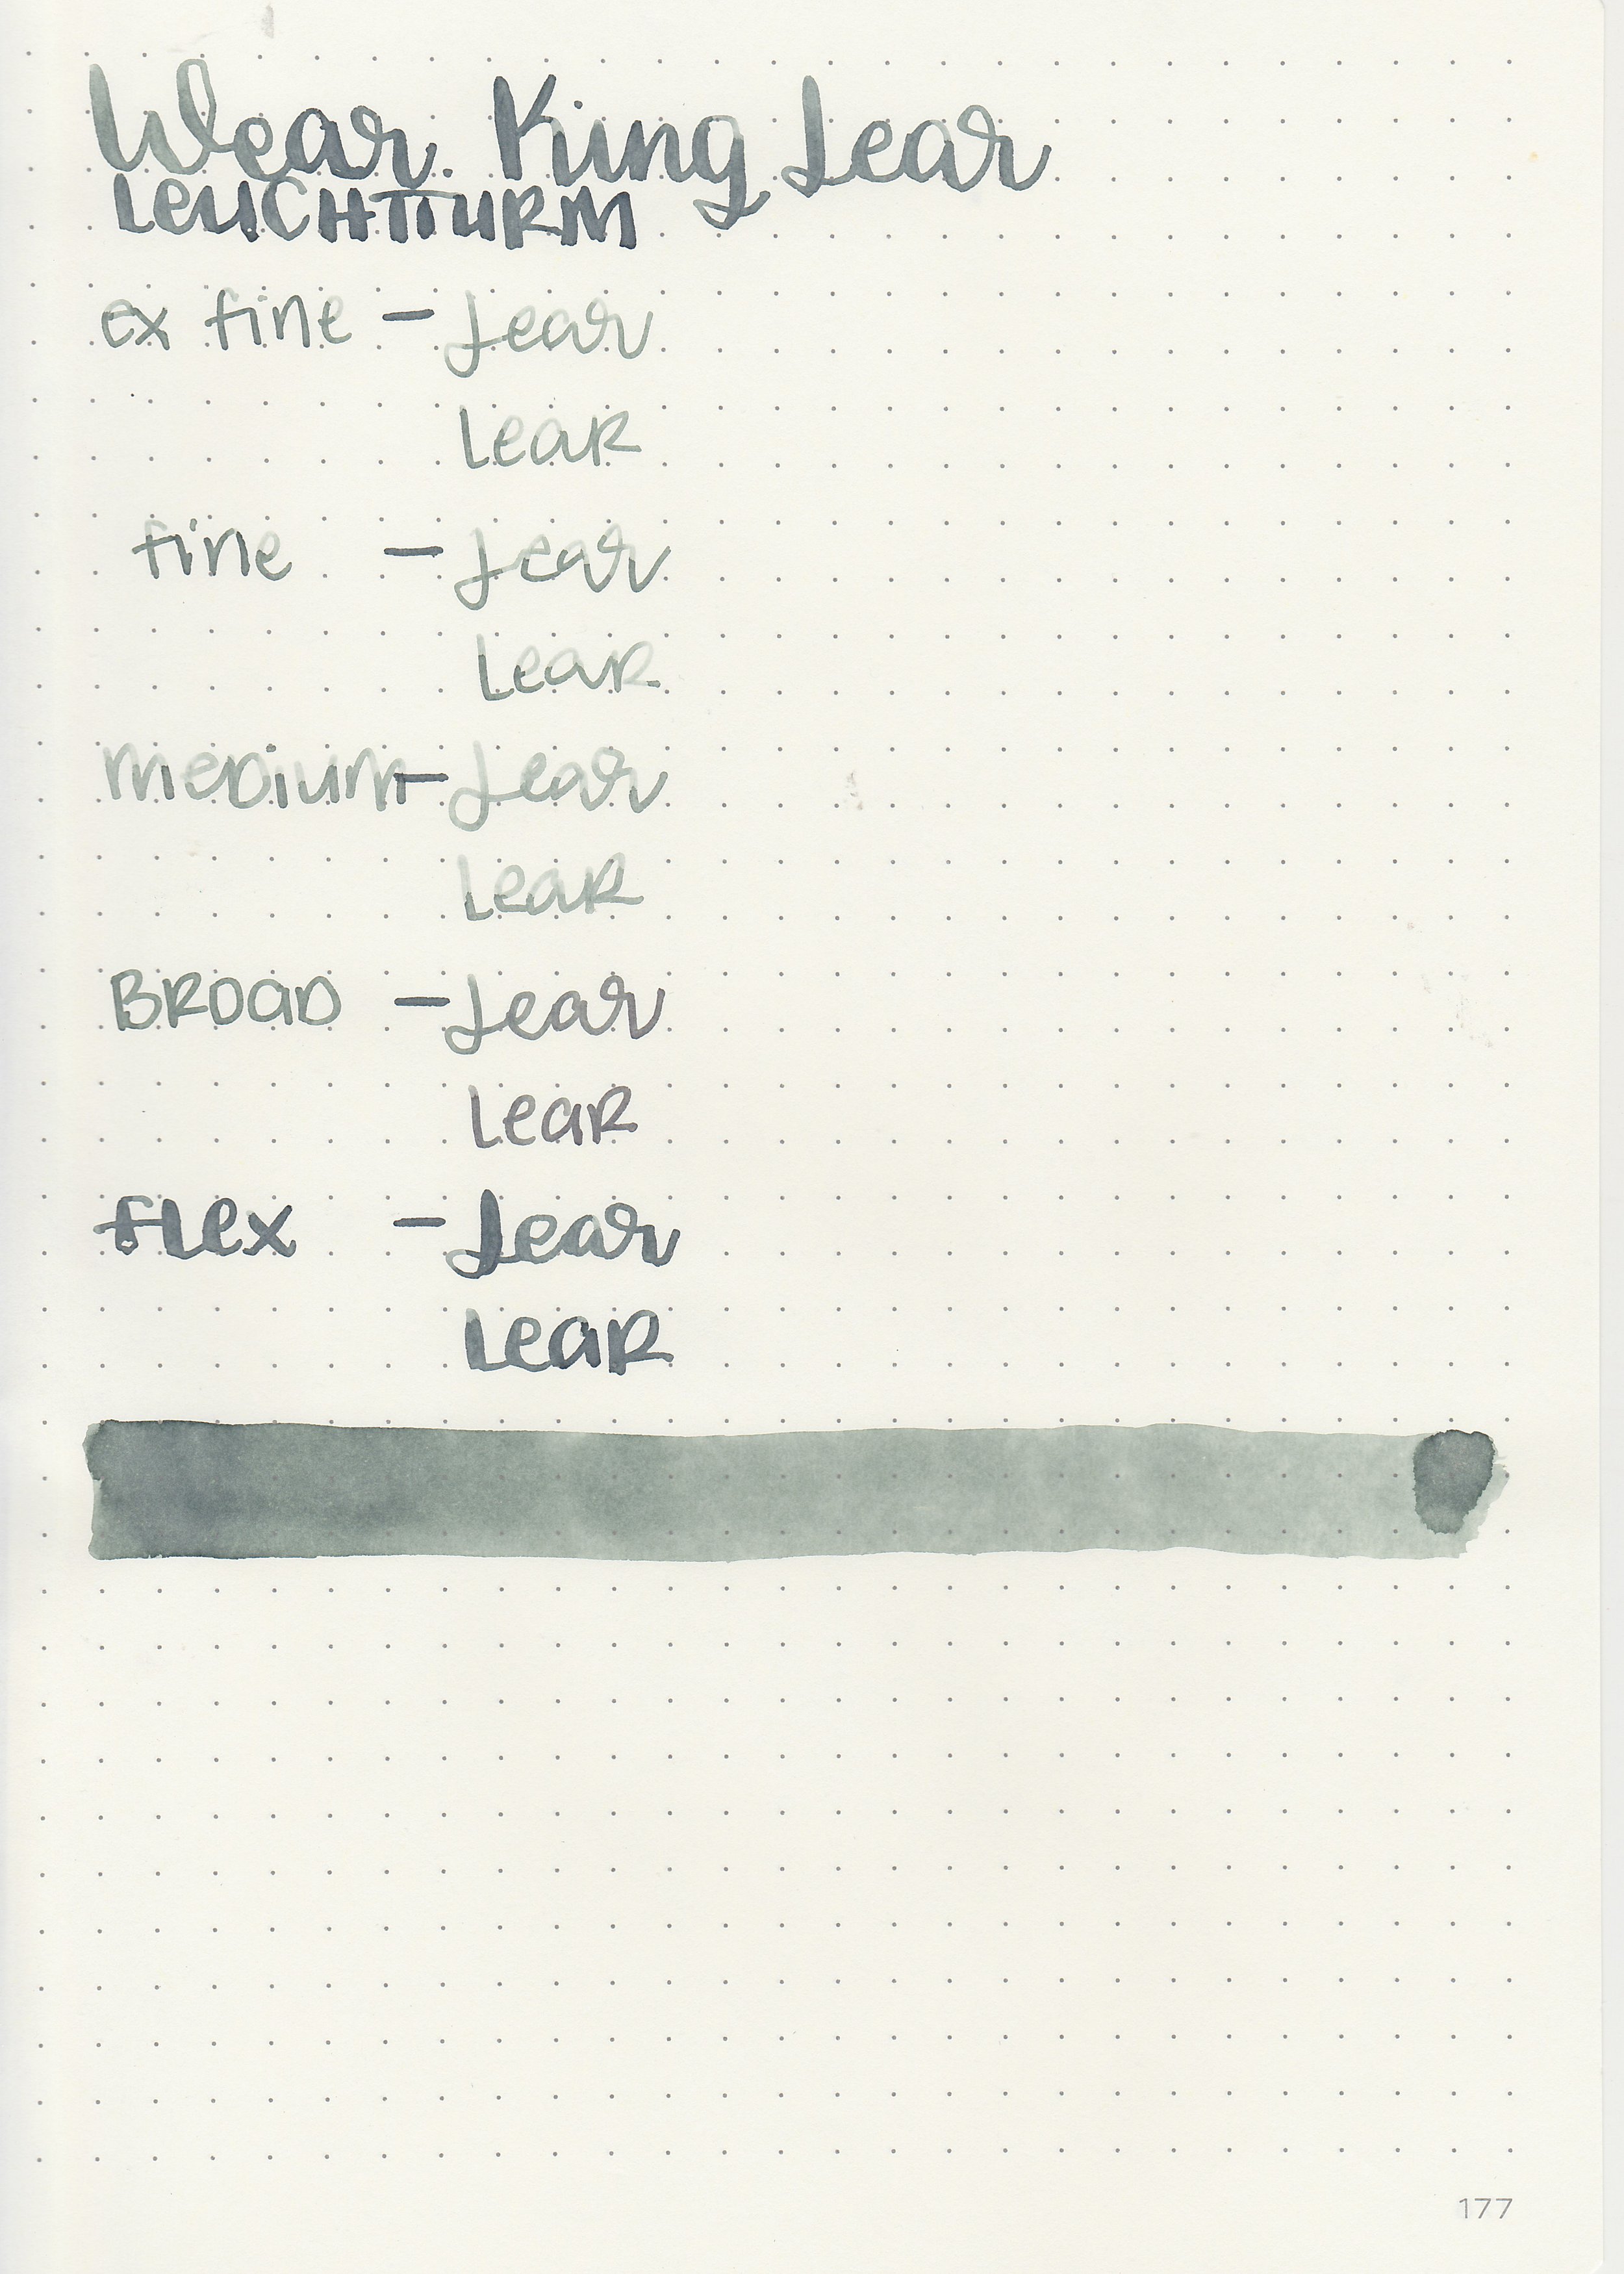 Wear. King Lear
LEUCHTTURM
ex fine - Lear
Lear
fine - Lear
Lear
Medium - Lear
Lear
Broad - Lear
Lear
flex - Lear
Lear
177